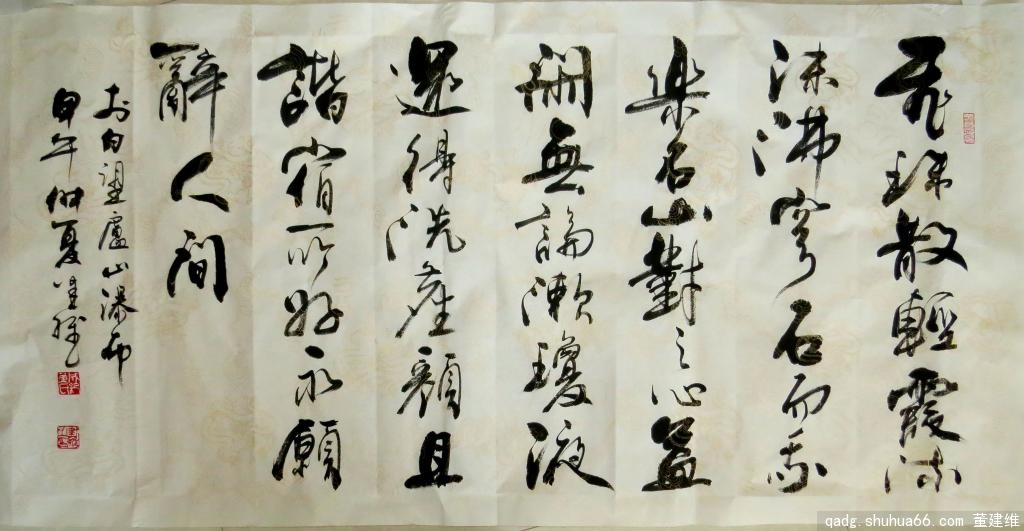 飛珠散輕霞流
沫沸穹石而我
樂名山對之心益
閒無論漱瓊液
還得洗塵顏且
諧宿所好永願
辭人間
李白望廬山瀑布
甲午仲夏建維
qadg.shuhua66.com 董建维